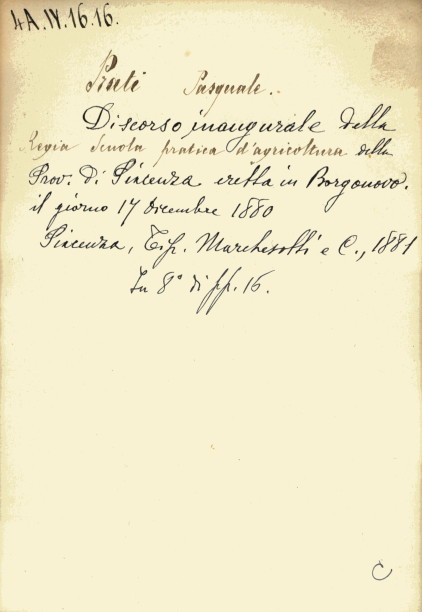 4A.IV.16.16.
Prati Pasquale.
Discorso inaugurale della
Regia Scuola pratica d'agricoltura della
Prov. di Piacenza eretta in Borgonovo.
il giorno 17 Dicembre 1880
Piacenza, Tip. Marchesotti e C., 1881
In 8° di pp. 16.
C